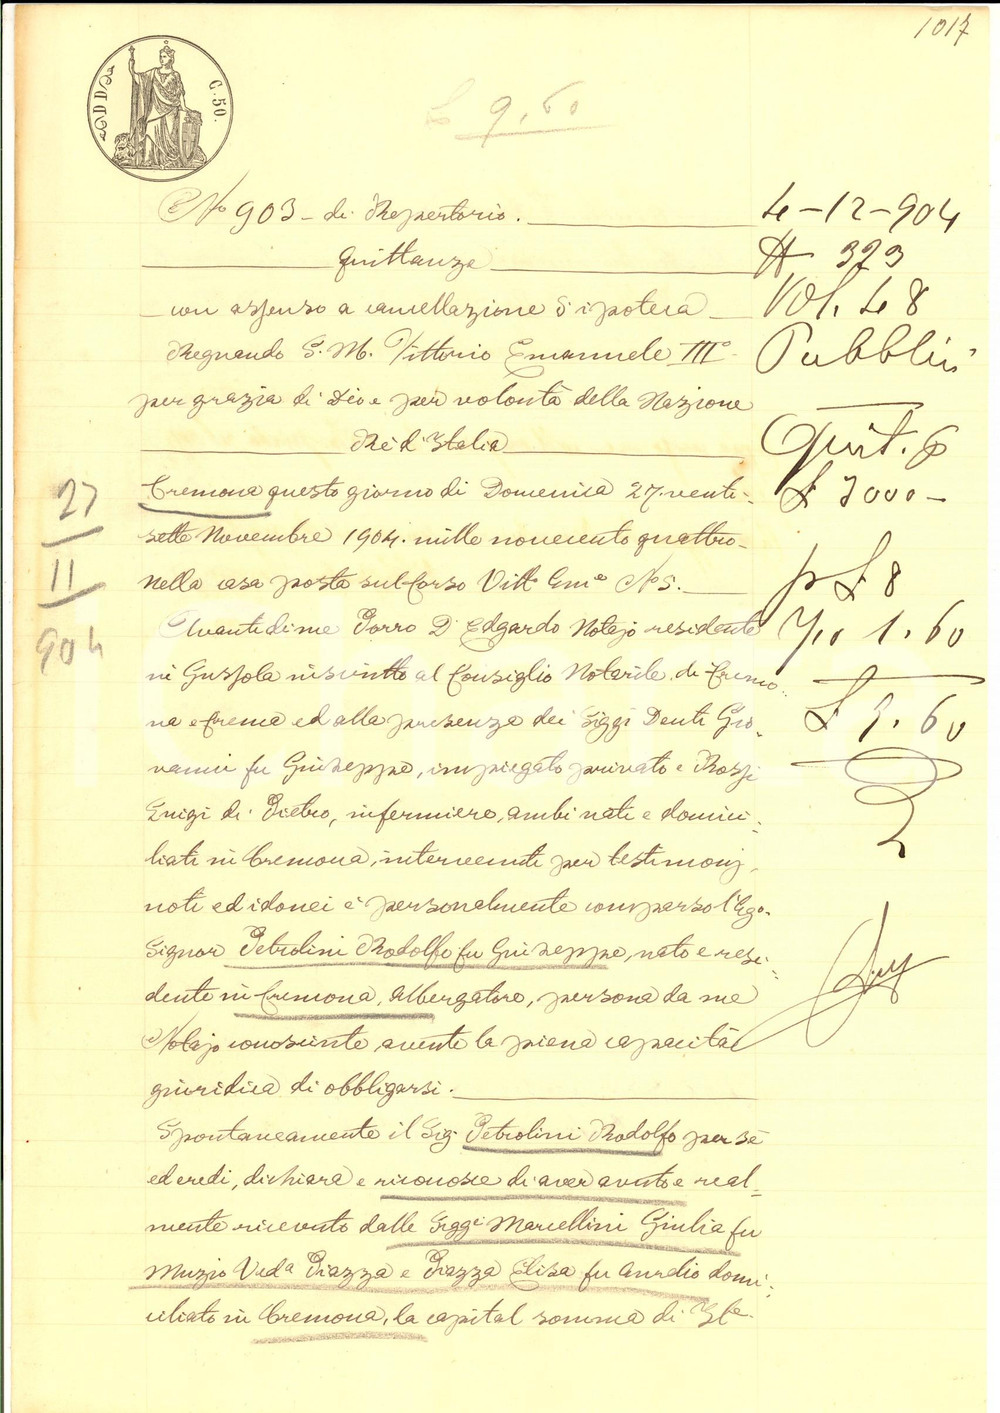 1017
C. 50.
£ 9,60
No 903 - di Repertorio.
4-12-904
Quittanza
N 373
con assenso a cancellazione d'ipoteca
Vol. 48
Regnando S. M. Vittorio Emanuele III°
Pubblici
per grazia di Dio e per volontà della Nazione
Re d'Italia
Quit.
Cremona questo giorno di Domenica 27. venti-
£ 7000 -
27
sette Novembre 1904. mille novecento quattro-
11
nella casa posta sul Corso Vitt° Em.e No 5.
£ 8
904
Avanti di me Porro Dr Edgardo Notajo residente
1.60
in Gussola inscritto al Consiglio Notarile di Cremo-
na e Crema ed alla presenza dei Siggi Denti Gio-
£ 9.60
vanni fu Giuseppe, impiegato privato e Rossi
Luigi di Pietro, infermiere, ambi nati e domici-
liati in Cremona, intervenuti per testimonj,
noti ed idonei è personalmente comparso l'Ego.
Signor Petrolini Rodolfo fu Giuseppe, nato e resi-
dente in Cremona, albergatore, persona da me
Notajo conosciuta, avente la piena capacità
giuridica di obbligarsi.
Spontaneamente il Sig. Petrolini Rodolfo per sè
ed eredi, dichiara e riconosce di aver avuto e real-
mente ricevuto dalle Siggi Marcellini Giulia fu
Muzio Veda Piazza e Piazza Elisa fu Aurelio domi-
ciliato in Cremona, la capital somma di